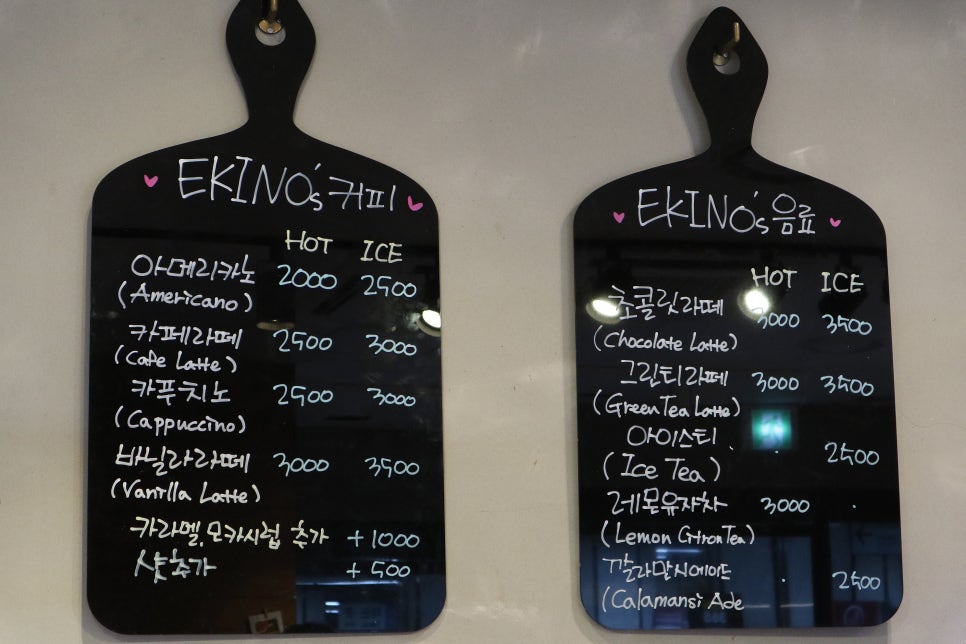 EKINO's 커피
HOT ICE
아메리카노 2000 2500
(Americano)
카페라떼 2500 3000
(Cafe Latte)
카푸치노 2500 3000
(Cappuccino)
바닐라라떼 3000 3500
(Vanilla Latte)
카라멜.모카시럽 추가 +1000
샷추가 +500
EKINO's 음료
HOT ICE
초콜릿라떼 3000 3500
(Chocolate Latte)
그린티라떼 3000 3500
(Green Tea Latte)
아이스티 . 2500
(Ice Tea)
레몬유자차 3000 .
(Lemon Citron Tea)
깔라만시에이드 . 2500
(Calamansi Ade